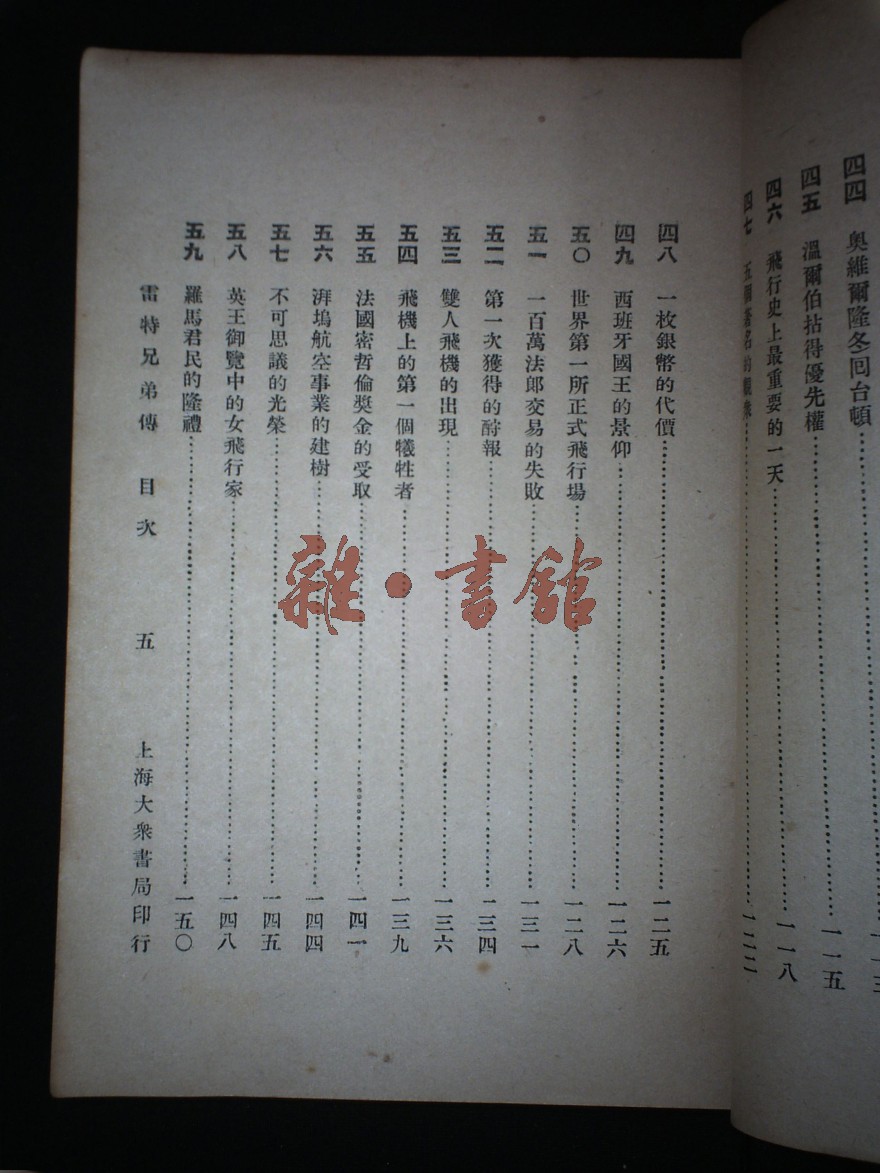 四四 奧維爾隆冬囘台頓
四五 溫爾伯拈得優先權……一一五
四六 飛行史上最重要的一天……一一八
四七 五個著名的觀衆……一二二
四八 一枚銀幣的代價……一二五
四九 西班牙國王的景仰……一二六
五〇 世界第一所正式飛行場……一二八
五一 一百萬法郎交易的失敗……一三一
五二 第一次獲得的酧報……一三四
五三 雙人飛機的出現……一三六
五四 飛機上的第一個犧牲者……一三九
五五 法國密哲倫獎金的受取……一四一
五六 湃塢航空事業的建樹……一四四
五七 不可思議的光榮……一四五
五八 英王御覽中的女飛行家……一四八
五九 羅馬君民的隆禮……一五〇
雷特兄弟傳 目次 五 上海大衆書局印行
雜·書館